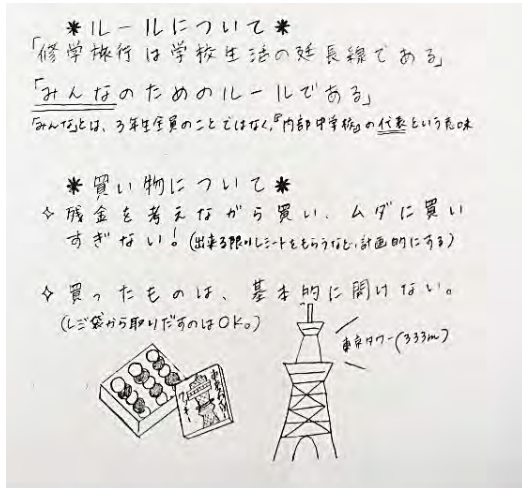 *ルールについて*
「修学旅行は学校生活の延長線である」
「みんなのためのルールである」
「みんな」とは、3年生全員のことではなく、『内部中学校』の代表という意味
*買い物について*
✧ 残金を考えながら買い、ムダに買い
すぎない！(出来る限りレシートをもらうなど、計画的にする)
✧ 買ったものは、基本的に開けない。
(レジ袋から取りだすのはOK。)
東京タワー(333m)